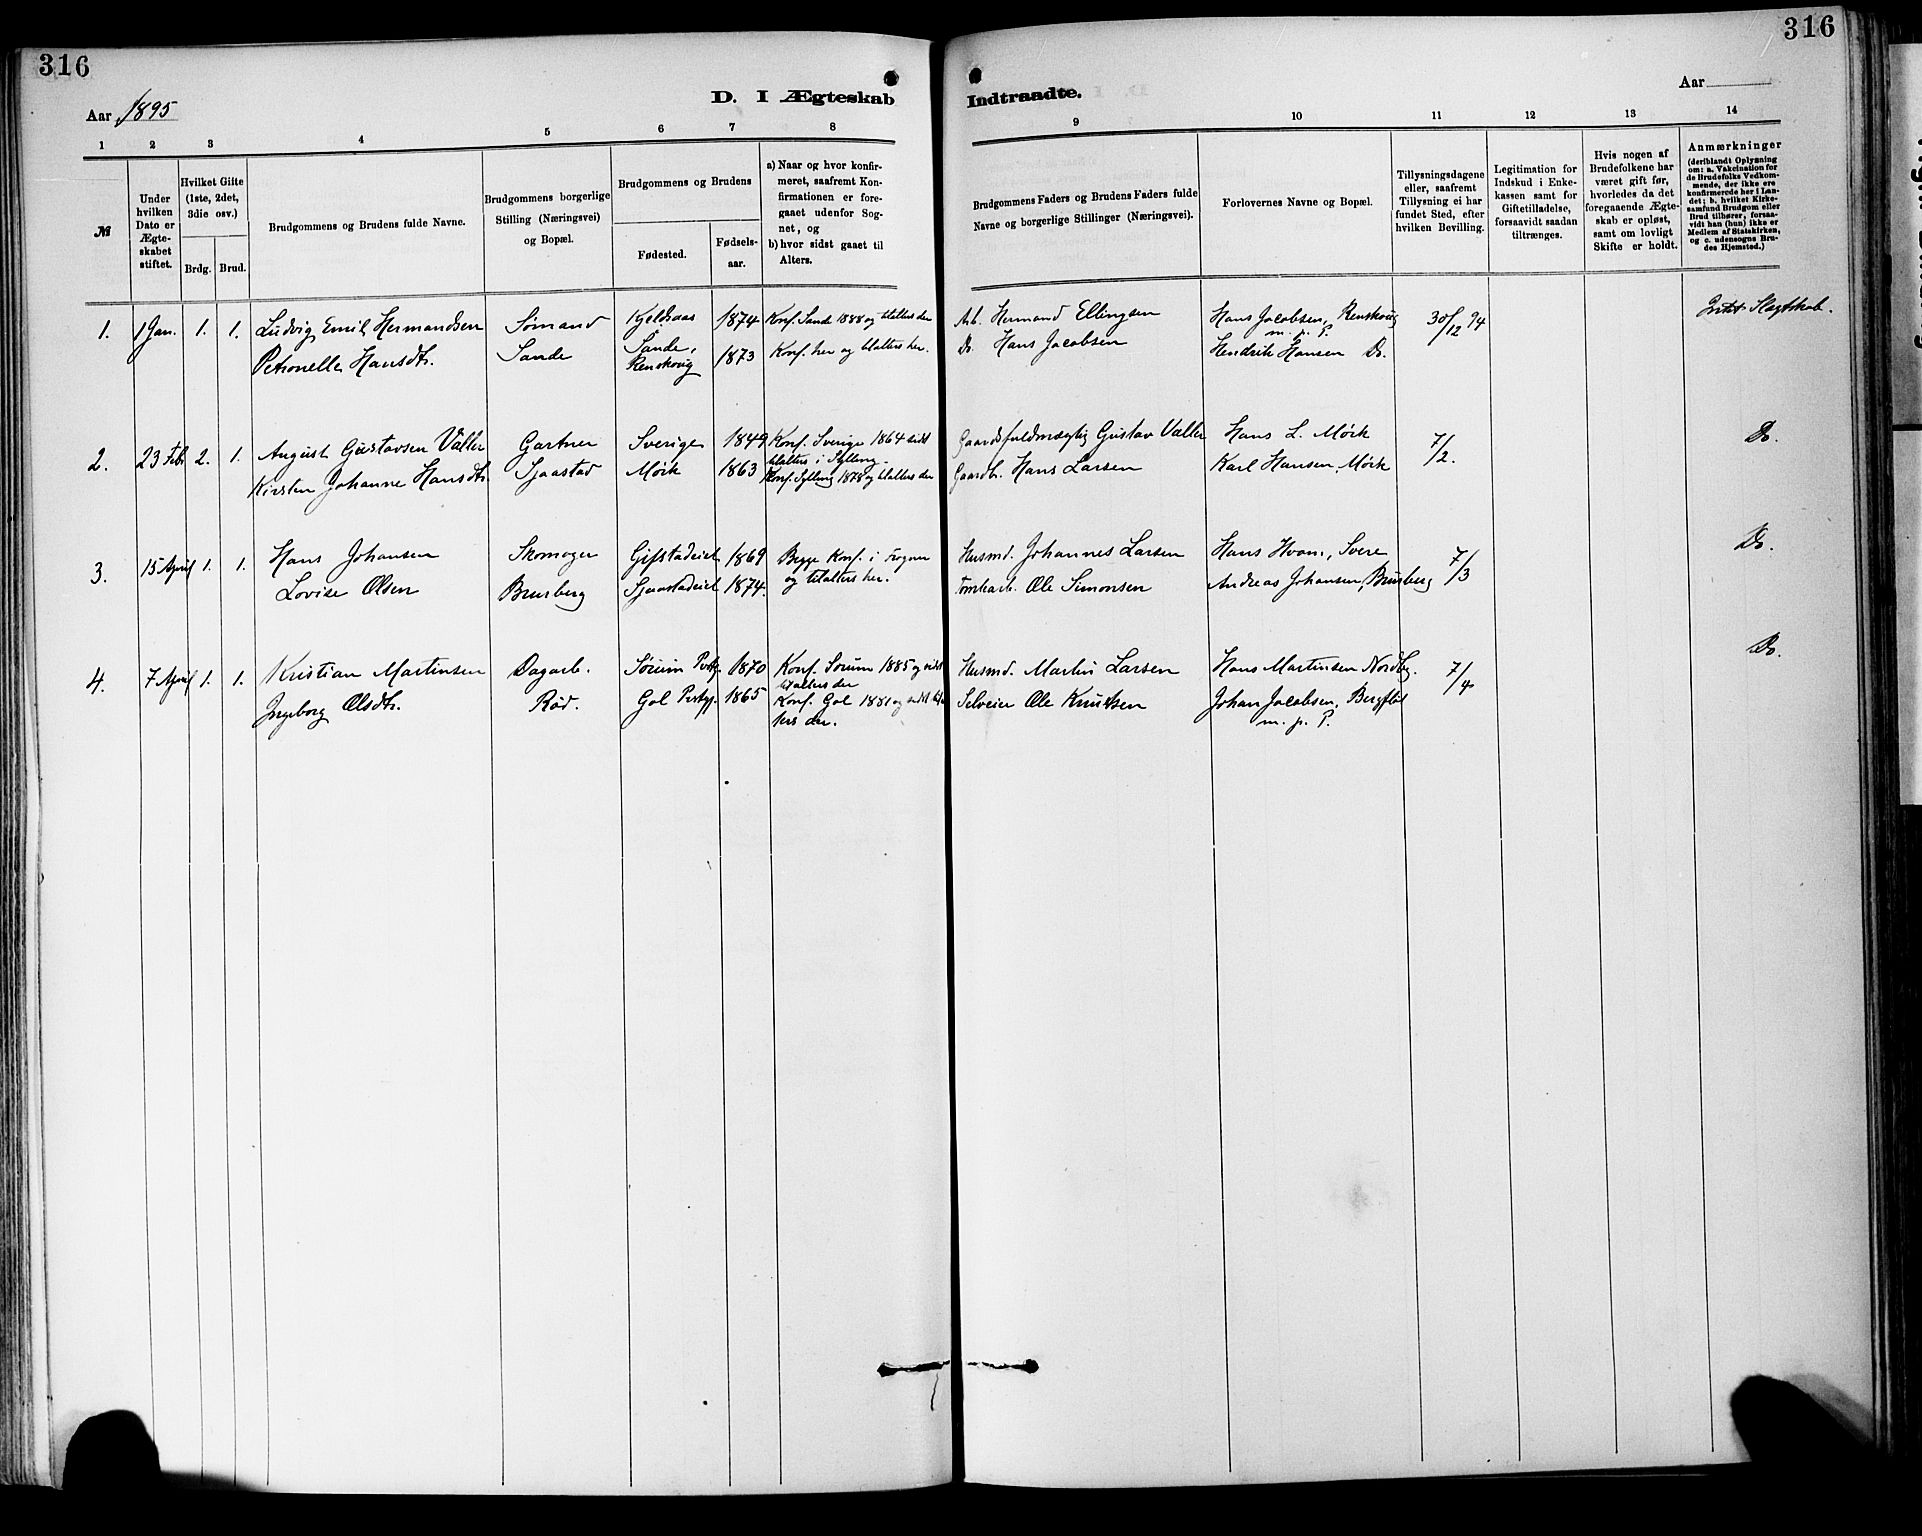 316
316
Aar 1895
D. I Ægteskab
Indtraadte.
Aar
1 2 3 4 5 6 7 8
9 10 11 12 13 14
№
Under hvilken Dato er Ægteskabet stiftet.
Hvilket Gifte (1ste, 2det, 3die osv.)
Brdg. Brud.
Brudgommens og Brudens fulde Navne.
Brudgommens borgerlige Stilling (Næringsvei) og Bopæl.
Brudgommens og Brudens
Fødested.
Fødselsaar.
a) Naar og hvor konfirmeret, saafremt Konfirmationen er foregaaet udenfor Sognet, og
b) hvor sidst gaaet til Alters.
Brudgommens Faders og Brudens Faders fulde Navne og borgerlige Stillinger (Næringsvei).
Forlovernes Navne og Bopæl.
Tillysningsdagene eller, saafremt Tillysning ei har fundet Sted, efter hvilken Bevilling.
Legitimation for Indskud i Enkekassen samt for Giftetilladelse, forsaavidt saadan tiltrænges.
Hvis nogen af Brudefolkene har været gift før, hvorledes da det foregaaende Ægteskab er opløst, samt om lovligt Skifte er holdt.
Anmærkninger
(deriblandt Oplysning om: a. Vakcination for de Brudefolks Vedkommende, der ikke ere konfirmerede her i Landet; b. hvilket Kirkesamfund Brudgom eller Brud tilhører, forsaavidt han (hun) ikke er Medlem af Statskirken, og c. udensogns Brudes Hjemsted.)
1. 1 Jan. 1. 1. Ludvig Emil Hermandsen Sømand Kjeldsaas 1874 Konf. Sande 1888 og tilalters der Arb. Hermand Ellingsen Hans Jacobsen, Renskoug 30/12 94 Intet Slegtskab.
m. p. P.
Petronelle Hansdtr. Sande Sande, Renskovig 1873 Konf. her og tilalters her. Do. Hans Jacobsen Hendrik Hansen Do.
2. 23 Febr 2. 1. August Gustavsen Valler Gartner Sverige 1849 Konf. Sverige 1864 sidst tilalters i Sylling. Gaardsfuldmægtig Gustav Valler Hans L. Mørk 7/2. Do.
Kirsten Johanne Hansdtr. Sjaastad Mørk 1863 Konf. Sylling 1878 og tilalters der Gaardbr. Hans Larsen Karl Hansen, Mørk
3. 15 April 1. 1. Hans Johansen Skomager Gifstadeiet 1869 Begge Konf. i Frogner Husmd. Johannes Larsen Hans Hvam, Svere 7/3 Do.
Lovise Olsen Brusberg Sjaastadeiet 1874. og tilalters her. Tomtearb. Ole Simonsen Andreas Johansen, Brusberg
4. 7 April 1. 1. Kristian Martinsen Dagarb. Sørum Prstg. 1870 Konf. Sørum 1885 og sidst tilalters der Husmd. Martin Larsen Hans Martinsen Nordbg. 7/4 Do.
Ingeborg Olsdtr. Rød. Gol Prstgj. 1865 Konf. Gol 1881 og sidst tilalters der. Selveier Ole Knutsen Johan Jacobsen, Bergflot
m. p. P.